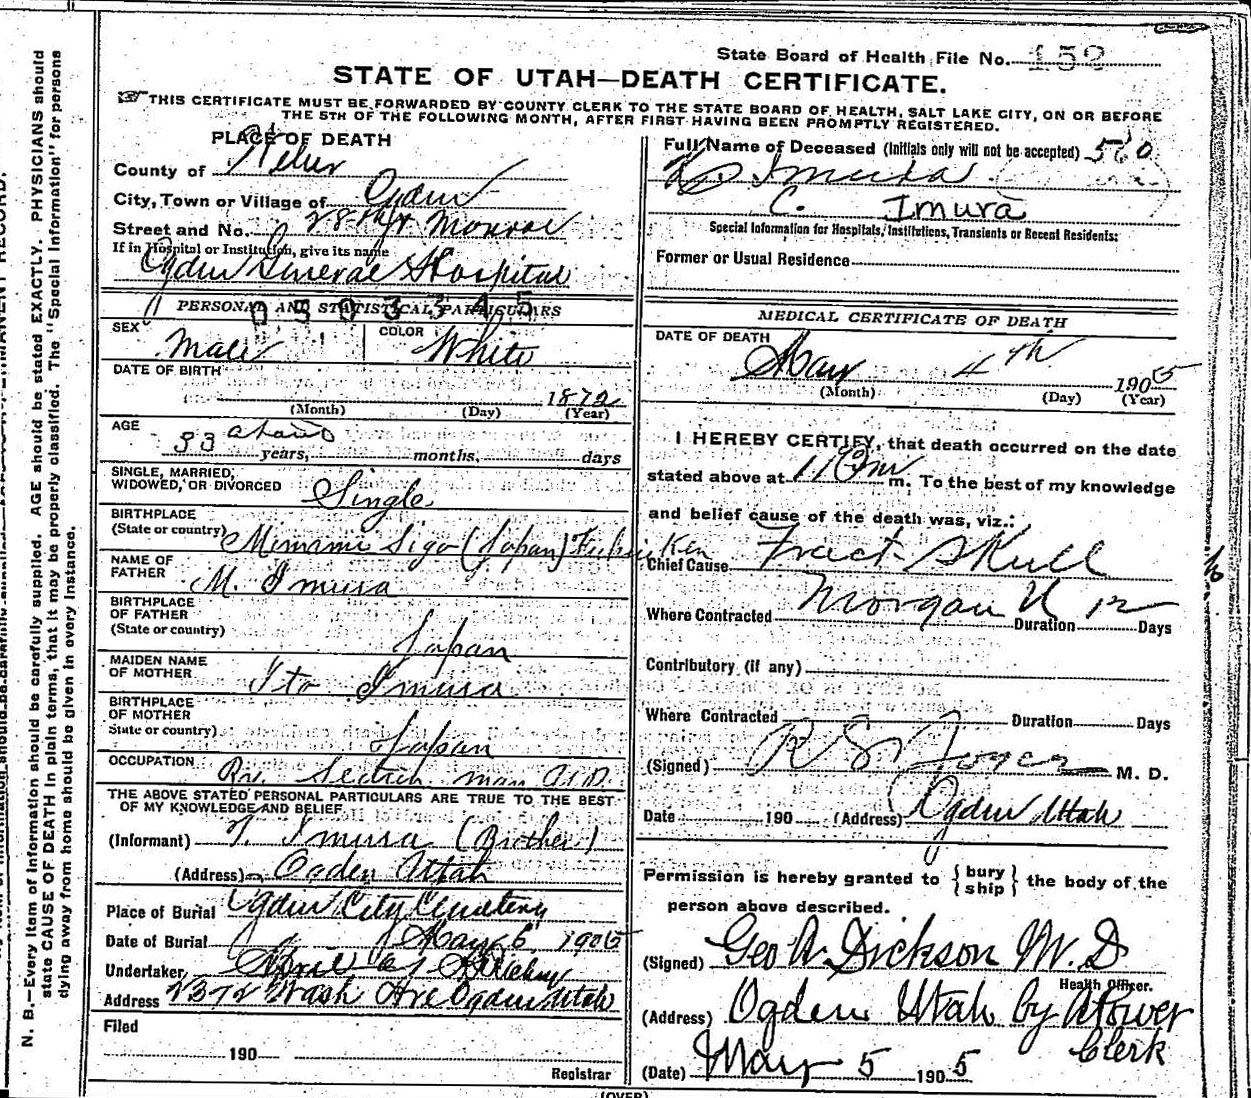 State Board of Health File No. 152
STATE OF UTAH—DEATH CERTIFICATE.
THIS CERTIFICATE MUST BE FORWARDED BY COUNTY CLERK TO THE STATE BOARD OF HEALTH, SALT LAKE CITY, ON OR BEFORE
THE 5TH OF THE FOLLOWING MONTH, AFTER FIRST HAVING BEEN PROMPTLY REGISTERED.
PLACE OF DEATH
County of Weber
City, Town or Village of Ogden
Street and No. 28th & Monroe
If in Hospital or Institution, give its name
Ogden General Hospital
PERSONAL AND STATISTICAL PARTICULARS
0503345
SEX Male COLOR White
DATE OF BIRTH
1872
(Month) (Day) (Year)
AGE
33 about years, months, days
SINGLE, MARRIED,
WIDOWED, OR DIVORCED Single
BIRTHPLACE
(State or country) Minami Sigo (Japan) Ken
NAME OF
FATHER M. Imura
BIRTHPLACE
OF FATHER
(State or country) Japan
MAIDEN NAME
OF MOTHER Ito Imura
BIRTHPLACE
OF MOTHER
State or country) Japan
OCCUPATION Ry. Section man
THE ABOVE STATED PERSONAL PARTICULARS ARE TRUE TO THE BEST
OF MY KNOWLEDGE AND BELIEF
(Informant) T. Imura (Brother)
(Address) Ogden Utah
Place of Burial Ogden City Cemetery
Date of Burial May 6 1905
Undertaker
Address 2372 Wash Ave Ogden Utah
Filed
190
Registrar
Full Name of Deceased (Initials only will not be accepted) 560
Imura
C. Imura
Special Information for Hospitals, Institutions, Transients or Recent Residents:
Former or Usual Residence
MEDICAL CERTIFICATE OF DEATH
DATE OF DEATH
May 4th 1905
(Month) (Day) (Year)
I HEREBY CERTIFY, that death occurred on the date
stated above at 11 Pm m. To the best of my knowledge
and belief cause of the death was, viz.:
Chief Cause Fract Skull
Where Contracted Morgan U Duration Days
Contributory (if any)
Where Contracted Duration Days
(Signed) M. D.
Date 190 (Address) Ogden Utah
Permission is hereby granted to {bury ship} the body of the
person above described.
(Signed) Geo A. Dickson M. D
Health Officer.
(Address) Ogden Utah by A Power
Clerk
(Date) May 5 1905
(OVER)
N. B.—Every item of information should be carefully supplied. AGE should be stated EXACTLY. PHYSICIANS should
state CAUSE OF DEATH in plain terms, that it may be properly classified. The "Special Information" for persons
dying away from home should be given in every instance.